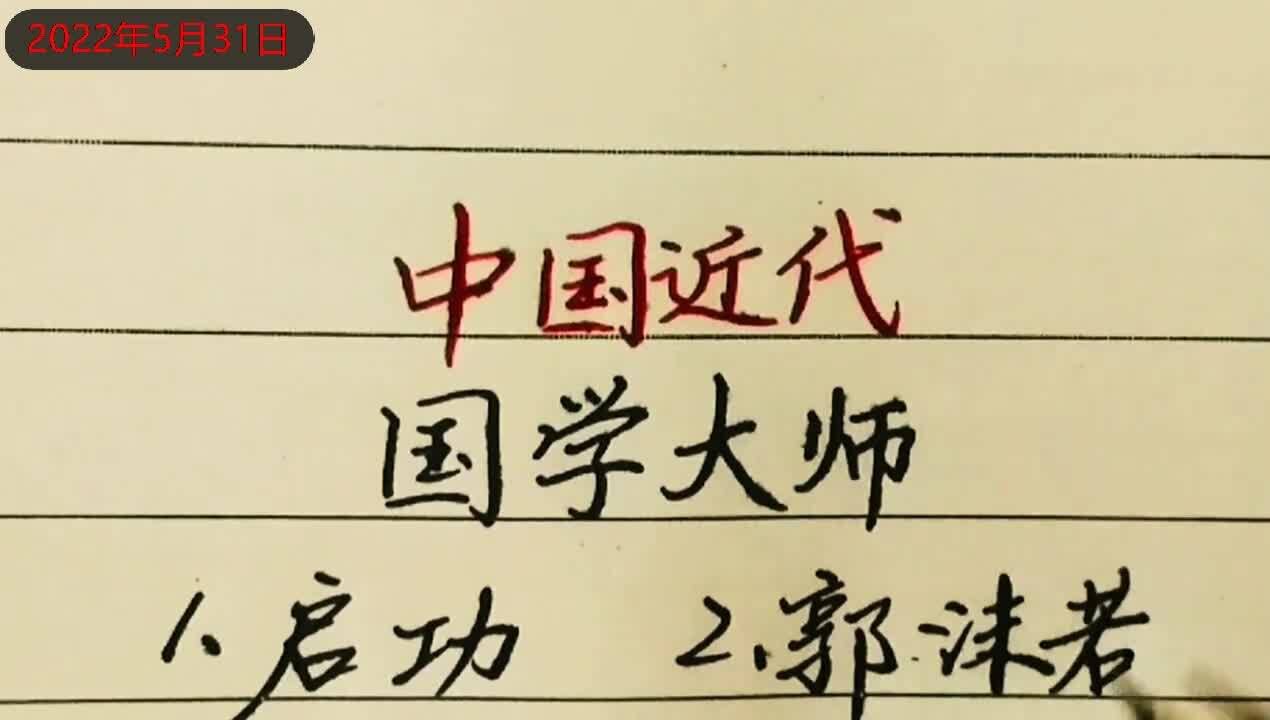 2022年5月31日
中国近代
国学大师
1、启功 2、郭沫若